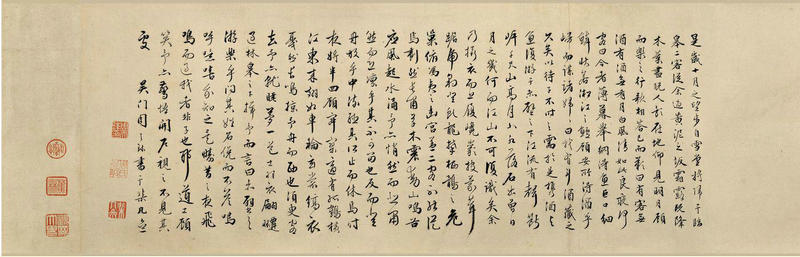 是歲十月之望步自雪堂將歸于臨
皋二客從余過黃泥之坂霜露既降
木葉盡脫人影在地仰見明月顧
而樂之行歌相答已而歎曰有客無
酒有酒無肴月白風清如此良夜何
客曰今者薄暮舉網得魚巨口細
鱗狀若松江之鱸顧安所得酒乎
歸而謀諸婦婦曰我有斗酒藏之
久矣以待子不時之需於是攜酒與
魚復游于赤壁之下江流有聲斷
岸千尺山高月小水落石出曾日
月之幾何而江山不可復識矣余
乃攝衣而上履巉巖披蒙茸
踞虎豹登虬龍攀棲鶻之危
巢俯馮夷之幽宮蓋二客不能從
焉劃然長嘯草木震動山鳴谷
應風起水涌予亦悄然而悲肅
然而恐凜乎其不可留也反而登
舟放乎中流聽其所止而休焉時
夜將半四顧寂寥適有孤鶴橫
江東來翅如車輪玄裳縞衣
戛然長鳴掠予舟而西也須臾客
去予亦就睡夢一道士羽衣翩躚
過臨皋之下揖予而言曰赤壁之
遊樂乎問其姓名俛而不答嗚
呼噫嘻我知之矣疇昔之夜飛
鳴而過我者非子也耶道士顧
笑予亦驚悟開戶視之不見其
處 吳門周之 書于